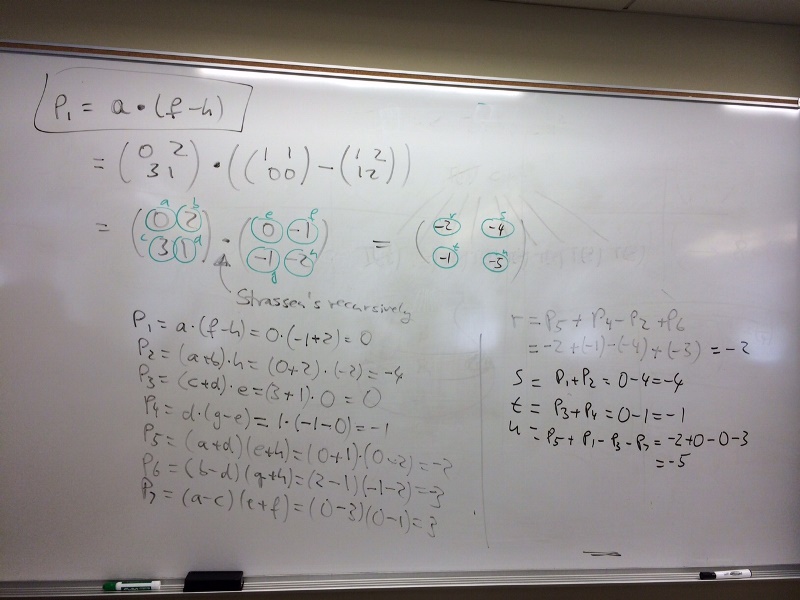 P₁ = a • (f – h)
= (0 2 3 1) • ((1 1 0 0) – (1 2 1 2))
= (a 0 b 2 c 3 d 1) • (e 0 f -1 g -1 h -2) = (r -2 s -4 t -1 u -5)
Strassen's recursively
P₁ = a·(f-h) = 0·(-1+2) = 0
P₂ = (a+b)·h = (0+2)·(-2) = -4
P₃ = (c+d)·e = (3+1)·0 = 0
P₄ = d·(g-e) = 1·(-1-0) = -1
P₅ = (a+d)(e+h) = (0+1)·(0-2) = -2
P₆ = (b-d)(g+h) = (2-1)(-1-2) = -3
P₇ = (a-c)(e+f) = (0-3)(0-1) = 3
r = P₅ + P₄ - P₂ + P₆
= -2 + (-1) - (-4) + (-3) = -2
s = P₁+P₂ = 0-4 = -4
t = P₃+P₄ = 0-1 = -1
u = P₅ + P₁ - P₃ - P₇ = -2+0-0-3
= -5